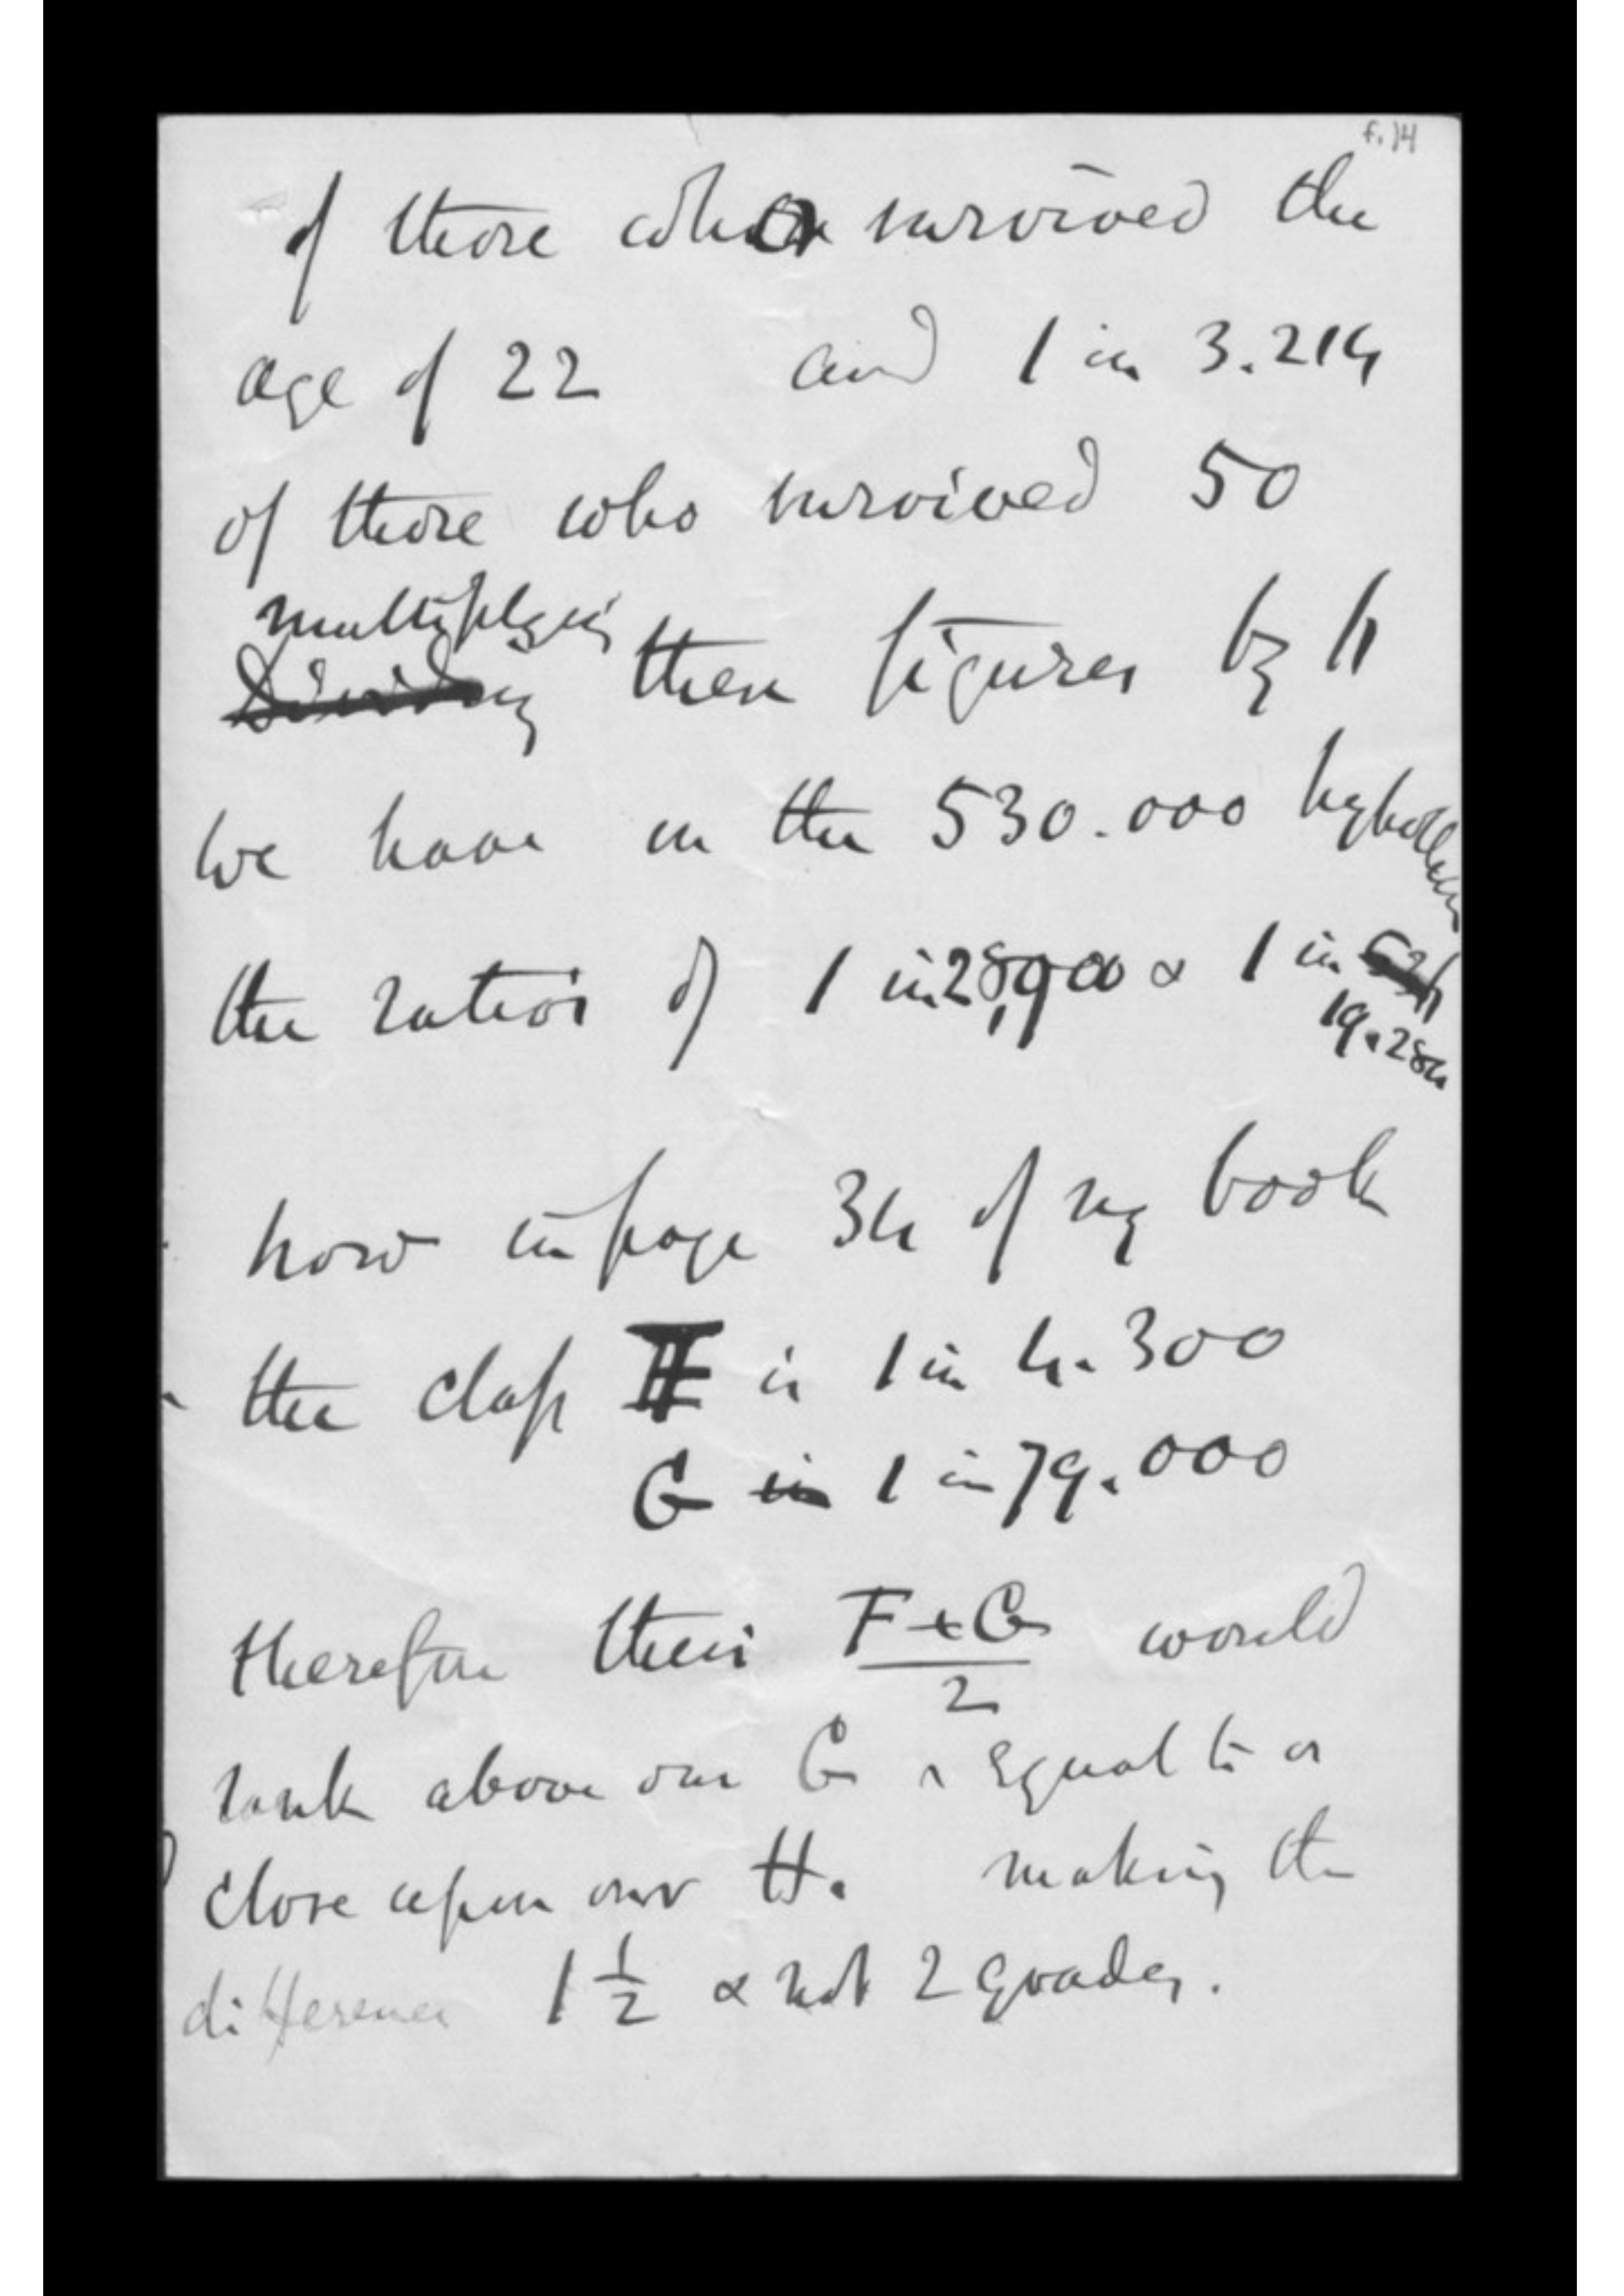 f.14
of those who survived the
age of 22 and 1 in 3.214
of those who survived 50
multiplying
Dividing these figures by 6
we have in the 530.000 hypothesis
the ratios of 1 in 28,900 & 1 in
19.284
now in page 34 of my book
the class F is 1 in 4.300
G in 1 in 79.000
therefore their F+G would
2
rank above our G & equal to or
close upon our H. making the
difference 1 1/2 & not 2 grades.